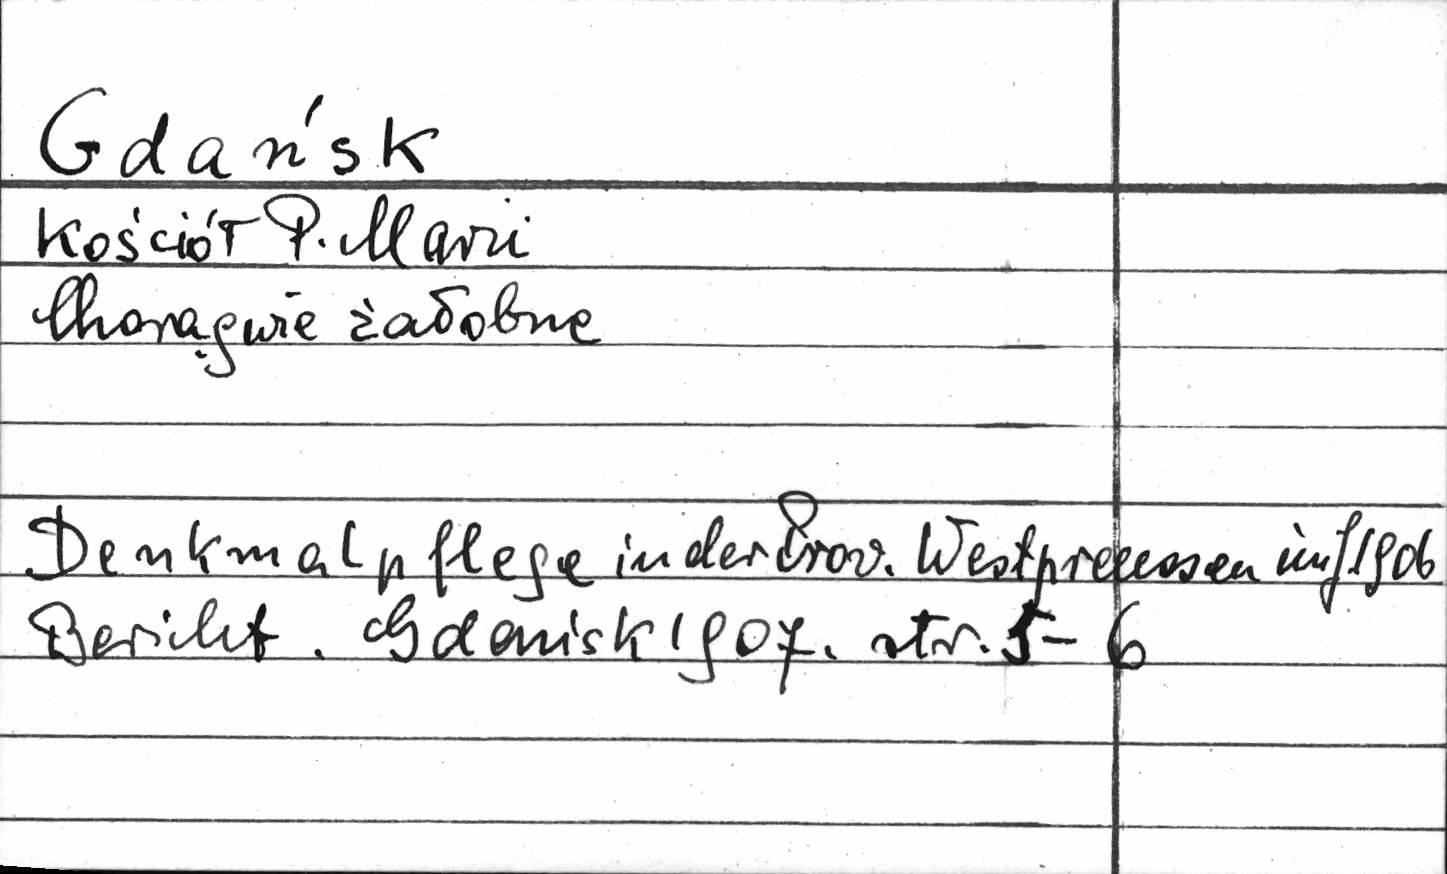 Gdańsk
Kościół P. Marii
Chorągwie żałobne
Denkmalpflege in der Prov. Westpreussen im J. 1906
Bericht. Gdańsk 1907. str. 5-6